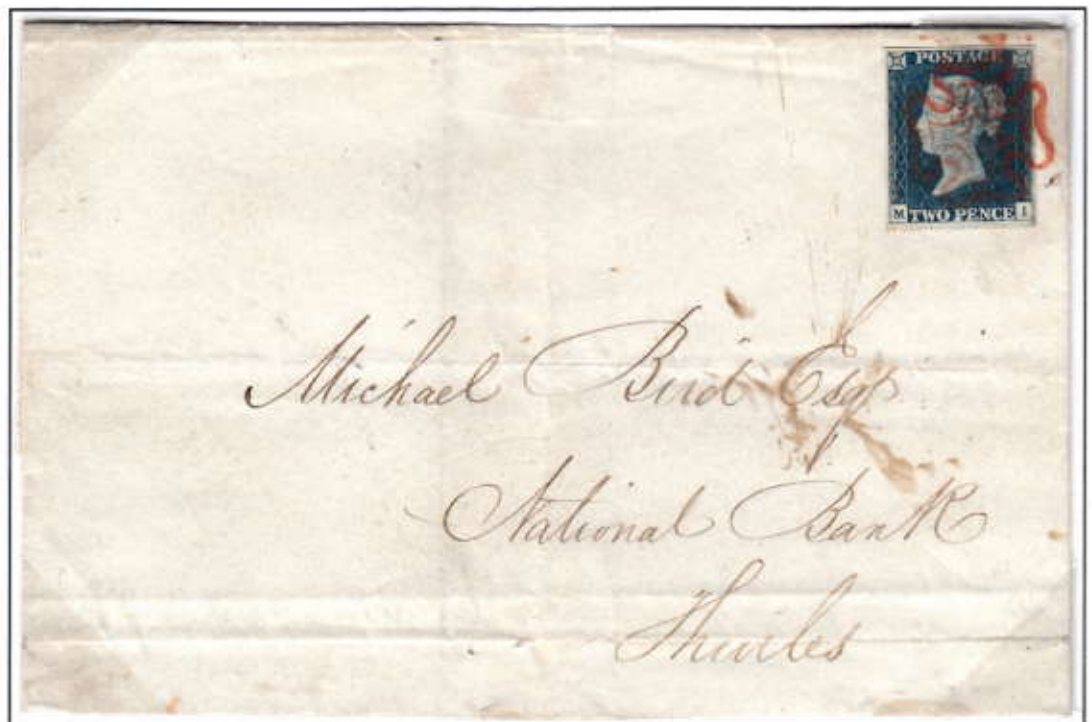 POSTAGE
M TWO PENCE I
Michael Bird Esq
National Bank
Thurles